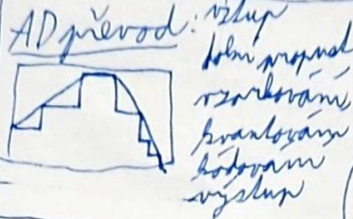 AD převod: vstup
dolní propust
vzorkování
kvantování
kódování
výstup